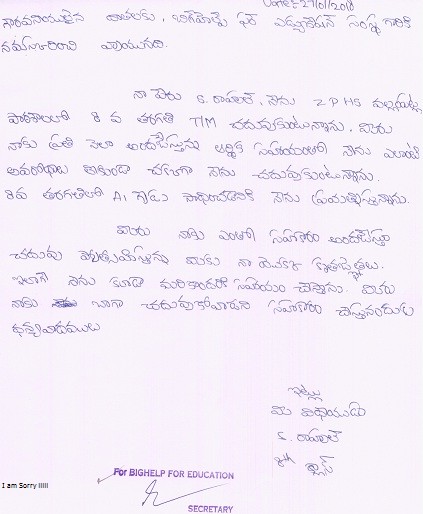 Date: 27/01/2018
గౌరవనీయులైన దాతలకు, బిగ్‌హెల్ప్ ఫర్ ఎడ్యుకేషన్ సంస్థ గారికి
నమస్కరించి వ్రాయునది.
నా పేరు S. రాహుల్, నేను ZPHS
పాఠశాలలో 8 వ తరగతి T/M చదువుకుంటున్నాను. మీరు
నాకు ప్రతి నెలా అందజేస్తున్న ఆర్థిక సహాయంతో నేను ఎలాంటి
అవరోధాలు లేకుండా చక్కగా నేను చదువుకుంటున్నాను.
8వ తరగతిలో A1 గ్రేడు సాధించడానికి నేను ప్రయత్నిస్తున్నాను.
మీరు నాకు ఎంతో సహకారం అందజేస్తూ
చదువు మీకు నా కృతజ్ఞతలు.
ఇలాగే నేను కూడా మరికొందరికి సహాయం చేస్తాను. మీరు
నాకు బాగా చదువుకోవడానికి సహకారం చేస్తునందుకు
ధన్యవాదములు
ఇట్లు
మీ విధేయుడు
S. రాహుల్
8th క్లాస్
For BIGHELP FOR EDUCATION
I am Sorry !!!!!
SECRETARY